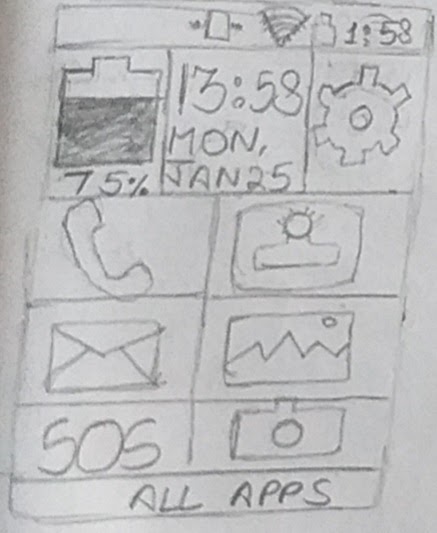 1:58
13:58
MON,
JAN25
75%
SOS
ALL APPS